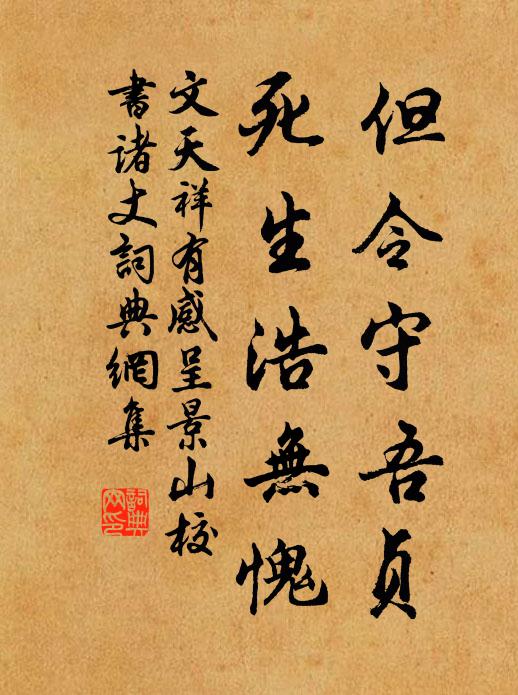 但令守吾貞
死生浩無愧
文天祥有感呈景山校
書諸丈詞典網集
詞典
网印